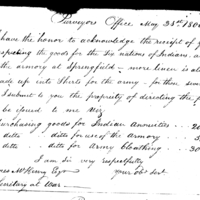 Purveyors Office May 23rd 180
have the honor to acknowledge the receipt of y
specting the goods for the Six nations of Indians, an
the armory at Springfield - more linen is al
ade up into Shirts for the army - for them
I submit to you the propriety of directing the f
be placed to me Viz
urchasing goods for Indian Annuities .. 20
ditto ditto for use of the armory ..
ditto ditto for Army Cloathing .. 30
I am Sir very respectfully
mes McHenry Esqr your Obt Servt
cretary at War